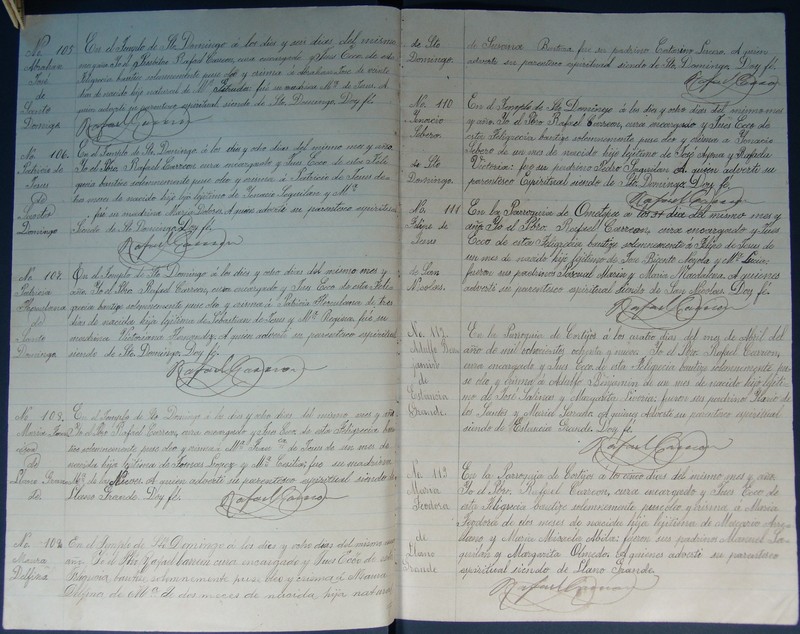 No. 105
Abraham
José
de
Santo
Domingo
En el Templo de Sto. Domingo á los diez y seis dias del mismo
mes y año Yo el Presbitero Rafael Carreon, cura encargado y Juez Ecco de esta
Feligrecia bautice solemnemente puse oleo y crisma á
dias de nacido hijo natural de Ma. fué su madrina Ma. de Jesus. A
quien advertí su parentesco espiritual siendo de Sto. Domingo. Doy fé.
Rafael Carreon
No. 106.
Patricio de
Jesus
de
Santo
Domingo
En el Templo de Sto. Domingo á los diez y ocho dias del mismo mes y año.
Yo el Pbro. Rafael Carreon cura encargado y Juez Ecco de esta Feli-
grecia bautice solemnemente puse oleo y crisma á Patricio de Jesus de
mes de nacido hijo legitimo de Ignacio y Ma.
fué su madrina Maria A quien advertí su parentesco espiritual
siendo de Sto. Domingo. Doy fé.
Rafael Carreon
No. 107.
Patricia
Herculana
de
Santo
Domingo
En el Templo de Sto. Domingo á los diez y ocho dias del mismo mes y
año. Yo el Pbro. Rafael Carreon, cura encargado y Juez Ecco de esta Feli-
grecia bautice solemnemente puse oleo y crisma á Patricia Herculana de
dias de nacida hija legitima de Sebastian de Jesus y Ma. Regina fué su
madrina Victoriana Fernandez A quien advertí su parentesco espiritual
siendo de Sto. Domingo. Doy fé.
Rafael Carreon
No. 108.
Maria
de
Llano Grande
En el Templo de Sto. Domingo á los diez y ocho dias del mismo mes y año
Yo el Pbro. Rafael Carreon, cura encargado y Juez Ecco de esta Feligrecia bau-
tice solemnemente puse oleo y crisma á Ma. de Jesus de un mes de
nacida hija legitima de Tomas Lopez y Ma. Casilda fué su madrina
Ma. de las Nieves. A quien advertí su parentesco espiritual siendo de
Llano Grande. Doy fé.
Rafael Carreon
No. 109.
Maura
Delfina
En el Templo de Sto. Domingo á los diez y ocho dias del mismo mes y
año. Yo el Pbro. Rafael Carreon cura encargado y Juez Ecco de esta
bautice solemnemente puse oleo y crisma á Maura
Delfina de Ma. de dos meses de nacida, hija natural
de Sto.
Domingo.
de Susana Bautista fué su padrino A quien
advertí su parentesco espiritual siendo de Sto. Domingo. Doy fé.
Rafael Carreon
No. 110
Ignacio
Libero
de Sto.
Domingo.
En el Templo de Sto. Domingo á los diez y ocho dias del mismo mes
y año. Yo el Pbro. Rafael Carreon, cura encargado y Juez Ecco de
esta Feligrecia bautice solemnemente puse oleo y crisma á Ignacio
Libero de un mes de nacido hijo legitimo de José y
Victoria: fué su padrino Pedro A quien advertí su
parentesco Espiritual siendo de Sto. Domingo. Doy fé.
Rafael Carreon
No. 111
Felipe de
Jesus
de San
Nicolas.
En la Parroquia de Ometepec á los 31 dias del mismo mes y
año. Yo el Pbro. Rafael Carreon, cura encargado y Juez
Ecco de esta Feligrecia bautice solemnemente á Felipe de Jesus de
un mes de nacido hijo legitimo de y Ma. Lucia:
fueron sus padrinos Marin y Maria Magdalena. A quienes
advertí su parentesco espiritual siendo de San Nicolas. Doy fé.
Rafael Carreon
No. 112
Adolfo Ben-
jamin
de
Estancia
Grande.
En la Parroquia de Cortijos á los cuatro dias del mes de Abril del
año de mil ochocientos ochenta y nueve. Yo el Pbro. Rafael Carreon,
cura encargado y Juez Ecco de esta Feligrecia bautice solemnemente pu-
se oleo y crisma á Adolfo Benjamin de un mes de nacido hijo legiti-
mo de José Salinas y Margarita Liboria: fueron sus padrinos Hilario de
los Santos y Maria A quienes Advertí su parentesco espiritual
siendo de Estancia Grande. Doy fé.
Rafael Carreon
No. 113
Maria
Teodora
de
Llano
Grande
En la Parroquia de Cortijos á los cinco dias del mismo mes y año.
Yo el Pbro. Rafael Carreon, cura encargado y Juez Ecco de
esta Feligrecia bautice solemnemente puse oleo y crisma á Maria
Teodora de dos meses de nacida hija legitima de Margarito Are-
llano y Maria Micaela Abila: fueron sus padrinos Manuel
y Margarita Olmedo. A quienes advertí su parentesco
espiritual siendo de Llano Grande.
Rafael Carreon